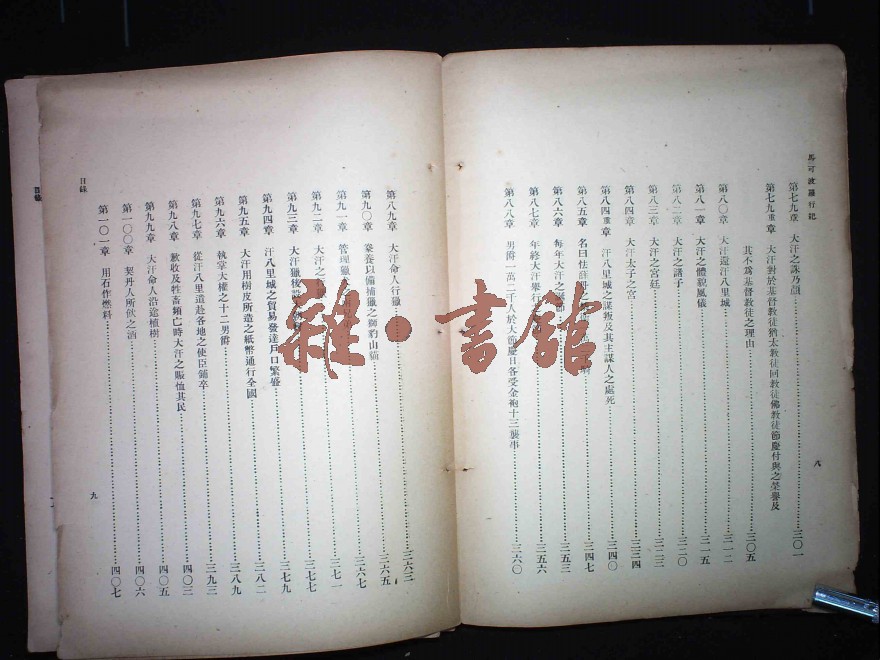 馬可波羅行記
第七九章 大汗之誅乃顏 三〇一
第七九重章 大汗對於基督教徒猶太教徒回教徒佛教徒節慶付與之榮譽及
其不爲基督教徒之理由 三〇五
第八〇章 大汗還汗八里城 三一二
第八一章 大汗之體貌風儀 三一五
第八二章 大汗之諸子 三二〇
第八三章 大汗之宮廷 三二三
第八四章 大汗太子之宮 三三四
第八四重章 汗八里城之謀叛及其主謀人之處死 三四〇
第八五章 名曰怯薛 三四七
第八六章 每年大汗之 三五三
第八七章 年終大汗舉行 三五六
第八八章 男爵一萬二千人於大節慶日各受金袍十三襲事 三六〇
八
第八九章 大汗命人行獵 三六三
第九〇章 豢養以備捕獵之獅豹山貓 三六五
第九一章 管理獵 三六七
第九二章 大汗之 三七一
第九三章 大汗獵後設 三七七
第九四章 汗八里城之貿易發達戶口繁盛 三七九
第九五章 大汗用樹皮所造之紙幣通行全國 三八二
第九六章 執掌大權之十二男爵 三八九
第九七章 從汗八里遣赴各地之使臣鋪卒 三九三
第九八章 歉收及牲畜頻亡時大汗之賑恤其民 四〇三
第九九章 大汗命人沿途植樹 四〇五
第一〇〇章 契丹人所飲之酒 四〇六
第一〇一章 用石作燃料 四〇七
目錄
九
目錄
雜·書館